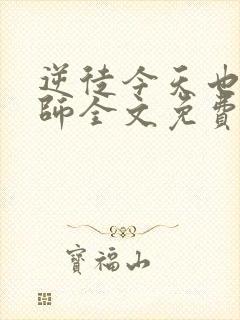 逆徒今天也
師全文免費
寶福山